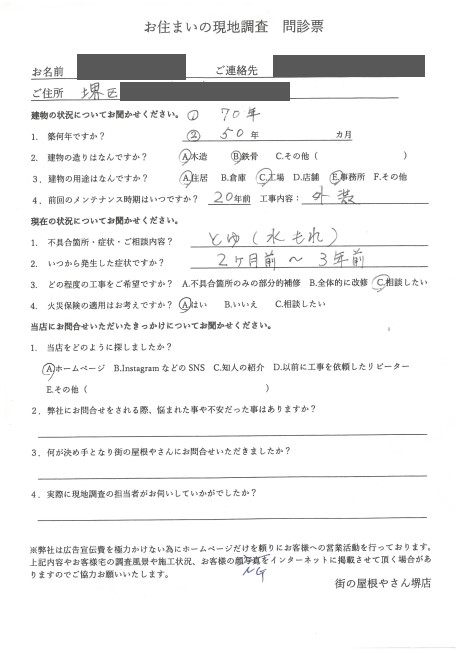 お住まいの現地調査 問診票
お名前 ご連絡先
ご住所 堺区
建物の状況についてお聞かせください。 ① 70年
1. 築何年ですか? ② 50年 カ月
2. 建物の造りはなんですか? A.木造 B.鉄骨 C.その他( )
3、建物の用途はなんですか? A.住居 B.倉庫 C.工場 D.店舗 E.事務所 F.その他
4、前回のメンテナンス時期はいつですか? 20年前 工事内容: 外装
現在の状況についてお聞かせください。
1. 不具合箇所・症状・ご相談内容? とゆ(水もれ)
2. いつから発生した症状ですか? 2ヶ月前 〜 3年前
3. どの程度の工事をご希望ですか? A.不具合箇所のみの部分的補修 B.全体的に改修 C.相談したい
4. 火災保険の適用はお考えですか? A.はい B.いいえ C.相談したい
当店にお問合せいただいたきっかけについてお聞かせください。
1. 当店をどのように探しましたか?
A.ホームページ B.InstagramなどのSNS C.知人の紹介 D.以前に工事を依頼したリピーター
E.その他( )
2．弊社にお問合せをされる際、悩まれた事や不安だった事はありますか?
3．何が決め手となり街の屋根やさんにお問合せいただきましたか?
4．実際に現地調査の担当者がお伺いしていかがでしたか?
※弊社は広告宣伝費を極力かけない為にホームページだけを頼りにお客様への営業活動を行っております。
上記内容やお客様宅の調査風景や施工状況、お客様の顔写真をインターネットに掲載させて頂く場合があ
りますのでご協力お願いいたします。 NG
街の屋根やさん堺店